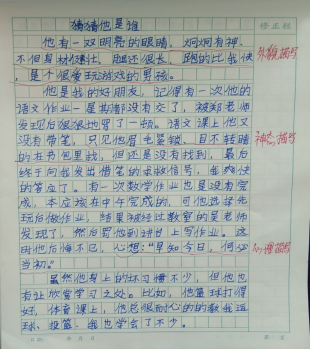 猜猜他是谁
修正栏
他有一双明亮的眼睛，炯炯有神。
不但身材健壮，腿还很长，跑的比我快
，是个很爱玩游戏的男孩。
外貌描写
他是我的好朋友，记得有一次他的
语文作业一星期都没有交了，被郑老师
发现后狠狠地骂了一顿。语文课上他又
没有带笔，只见他眉毛紧锁、目不转睛
的在书包里找，但还是没有找到，最后
终于向我发出借笔的求救信号，我爽快
的答应了。有一次数学作业也是没有完
成，本应该在中午完成的，可他选择先
玩后做作业，结果被经过教室的吴老师
发现了，然后罚他到讲台上写作业。这
时他后悔不已，心想："早知今日，何必
当初。"
神态描写
心理描写
虽然他身上的坏习惯不少，但他也
有让欣赏学习之处。比如，他篮球打得
好，体育课上，他总很耐心的的教我运
球、投篮，我也学会了不少。